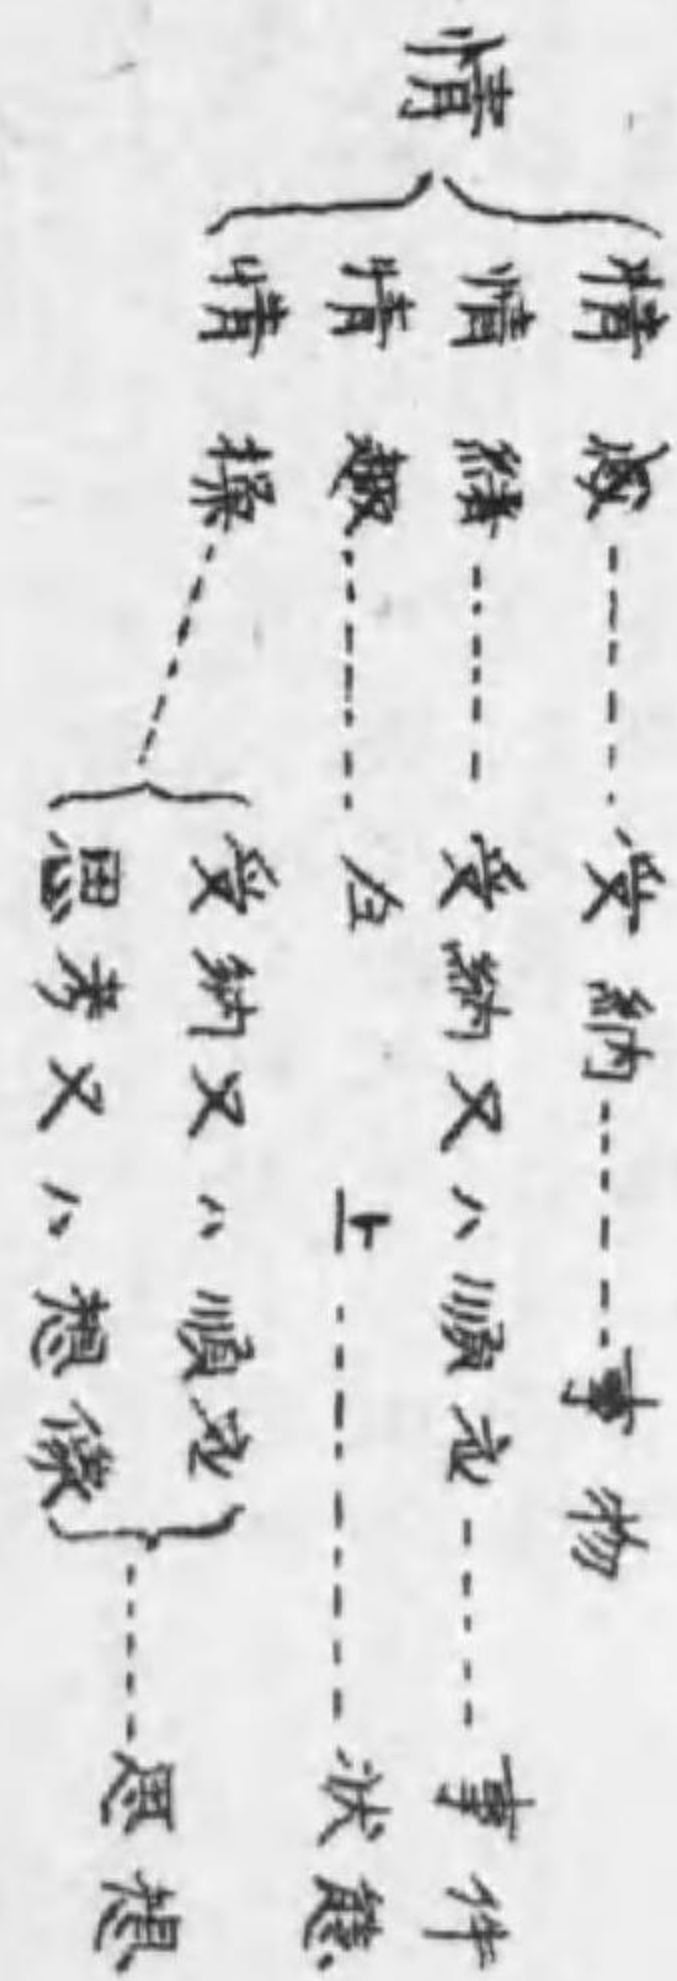 情
情感-----受納-----事物
情緒-----受納又ハ順応-----事件
情趣-----仝上-----状態
情操-----受納又ハ順応
思考又ハ想像-----思想